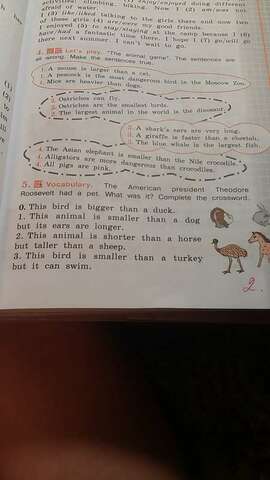 activities: climbing, hiking. Now I (2) am/was not
afraid of water. I (3) enjoy/enjoyed doing different
(3) like/liked talking to the girls there and now two
of these girls (4) are/were my good friends.
I enjoyed (5) to stay/staying at the camp because I (6)
have/had a fantastic time there. I hope I (7) go/will go
there next summer. I can't wait to go.
4. Let's play. "The animal game". The sentences are
all wrong. Make the sentences true.
1. A mouse is larger than a cat.
1. A peacock is the most dangerous bird in the Moscow Zoo.
1. Mice are heavier than dogs.
2. Ostriches can fly.
2. Ostriches are the smallest birds.
2. The largest animal in the world is the dinosaur.
3. A shark's ears are very long.
3. A giraffe is faster than a cheetah.
3. The blue whale is the largest fish.
4. The Asian elephant is smaller than the Nile crocodile.
4. Alligators are more dangerous than crocodiles.
4. All pigs are pink.
5. Vocabulary. The American president Theodore
Roosevelt had a pet. What was it? Complete the crossword.
0. This bird is bigger than a duck.
1. This animal is smaller than a dog
but its ears are longer.
2. This animal is shorter than a horse
but taller than a sheep.
3. This bird is smaller than a turkey
but it can swim.
2.